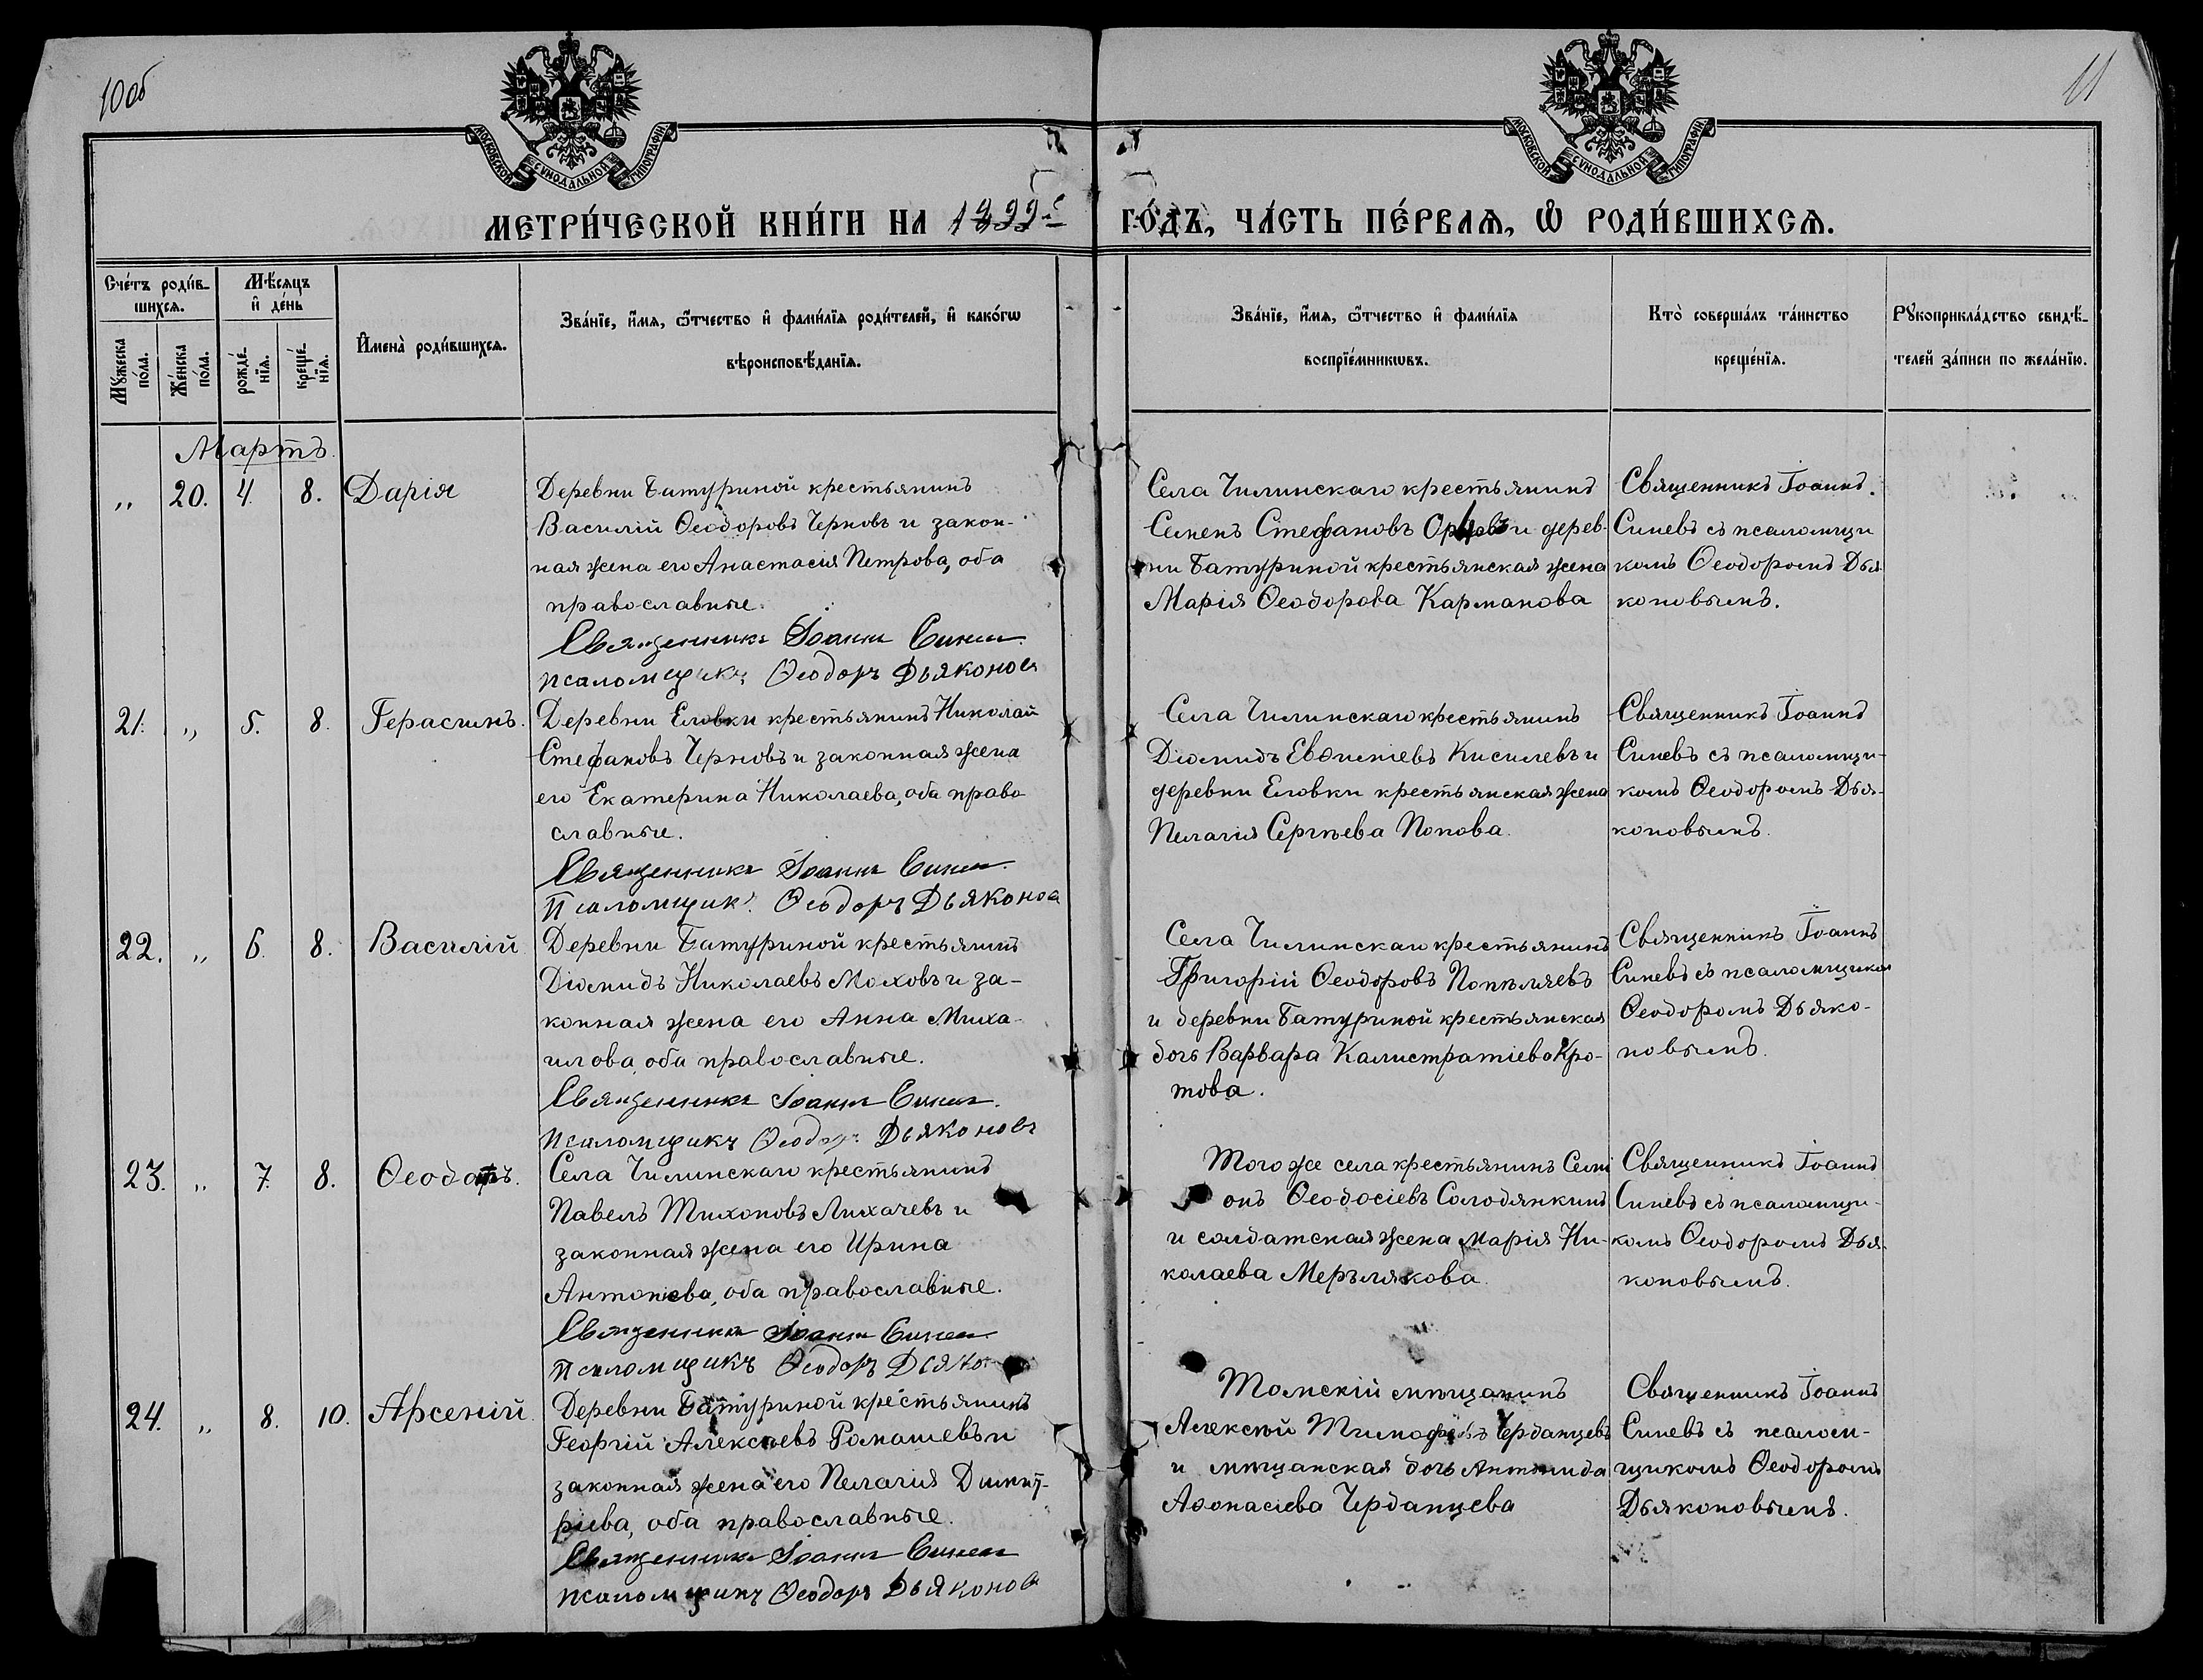 10об
11
МОСКОВСКОЙ СУНОДАЛЬНОЙ ТИПОГРАФІИ
МОСКОВСКОЙ СУНОДАЛЬНОЙ ТИПОГРАФІИ
МЕТРИ́ЧЕСКОЙ КНИ́ГИ НА
ГО́ДЪ, ЧА́СТЬ ПЕ́РВАѦ, Ѡ РОДИ́ВШИХСѦ.
Сче́тъ роди́в-
шихсѧ.
Мꙋ́жеска
по́ла.
Же́нска
по́ла.
Мѣ́сѧцъ
и де́нь
рожде́-
нїѧ.
креще́-
нїѧ.
Имена̀ роди́вшихсѧ.
Зва́нїе, и́мѧ, ѻ́тчество и фами́лїѧ роди́телей, и како́гѡ
вѣроисповѣ́данїѧ.
Зва́нїе, и́мѧ, ѻ́тчество и фами́лїѧ
воспрїе́мникѡвъ.
Кто̀ соверша́лъ та́инство
креще́нїѧ.
Рꙋкоприкла́дство свидѣ́-
телей за́писи по жела́нїю.
Мартъ.
„ 20. 4. 8. Дарія
Деревни Батуриной крестьянинъ
Василій Ѳеодоровъ Черновъ и закон-
ная жена его Анастасія Петрова, оба
православные.
Священникъ Іоаннъ Синев
псаломщикъ Ѳеодоръ Дьяконов
Села Чилинскаго крестьянинъ
Семенъ Стефановъ и дерев-
ни Батуриной крестьянская жена
Марія Ѳеодорова Карманова
Священникъ Іоаннъ
Синевъ съ псаломщи
комъ Ѳеодоромъ Дья-
коновымъ.
21. „ 5. 8. Герасимъ.
Деревни Еловки крестьянинъ Николай
Стефановъ Черновъ и законная жена
его Екатерина Николаева, оба право
славные.
Священникъ Іоаннъ Синев
Псаломщикъ Ѳеодоръ Дьяконов
Села Чилинскаго крестьянинъ
Діомидъ Евѳиміевъ Кисилевъ и
деревни Еловки крестьянская жена
Пелагія Сергѣева Попова.
Священникъ Іоаннъ
Синевъ съ псаломщи-
комъ Ѳеодоромъ Дья-
коновымъ.
22. „ 6. 8. Василій
Деревни Батуриной крестьянинъ
Діомидъ Николаевъ Моховъ и за-
конная жена его Анна Миха-
илова, оба православные.
Священникъ Іоаннъ Синев
Псаломщикъ Ѳеодоръ Дьяконовъ
Села Чилинскаго крестьянинъ
Григорій Ѳеодоровъ Попѣляевъ
и деревни Батуриной крестьянская
дочь Варвара Калистратіева Кро-
това.
Священникъ Іоаннъ
Синевъ съ псаломщиком
Ѳеодоромъ Дьяко-
новымъ.
23. „ 7. 8. Ѳеодоръ.
Села Чилинскаго крестьянинъ
Павелъ Тихоновъ Лихачевъ и
законная жена его Ирина
Антонieва, оба православные.
Священникъ Іоаннъ Синев
Псаломщикъ Ѳеодоръ
Того же села крестьянинъ Семі
онъ Ѳеодосіевъ Солодянкинъ
и солдатская жена Марія Ни-
колаева Мерьлякова.
Священникъ Іоаннъ
Синевъ съ псаломщи-
комъ Ѳеодоромъ Дья-
коновымъ.
24. „ 8. 10. Арсеній.
Деревни Батуриной крестьянинъ
Георгій Алексѣевъ Ромашевъ и
законная жена его Пелагія Димит-
ріева, оба православные.
Священникъ Іоаннъ Синев
псаломщикъ Ѳеодоръ Дьяконов
Томскій мѣщанинъ
Алексѣй Тимофѣевъ Черданцевъ
и мѣщанская дочь Антонида
Аѳонасіева Черданцева
Священникъ Іоаннъ
Синевъ съ псалом-
щикомъ Ѳеодоромъ
Дьяконовымъ.